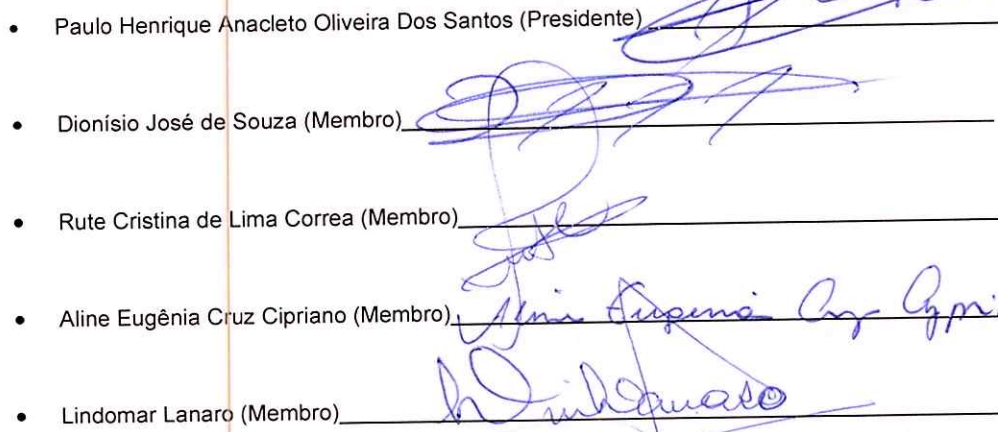 • Paulo Henrique Anacleto Oliveira Dos Santos (Presidente)
• Dionísio José de Souza (Membro)
• Rute Cristina de Lima Correa (Membro)
• Aline Eugênia Cruz Cipriano (Membro) Aline Eugenia Cruz
• Lindomar Lanaro (Membro)